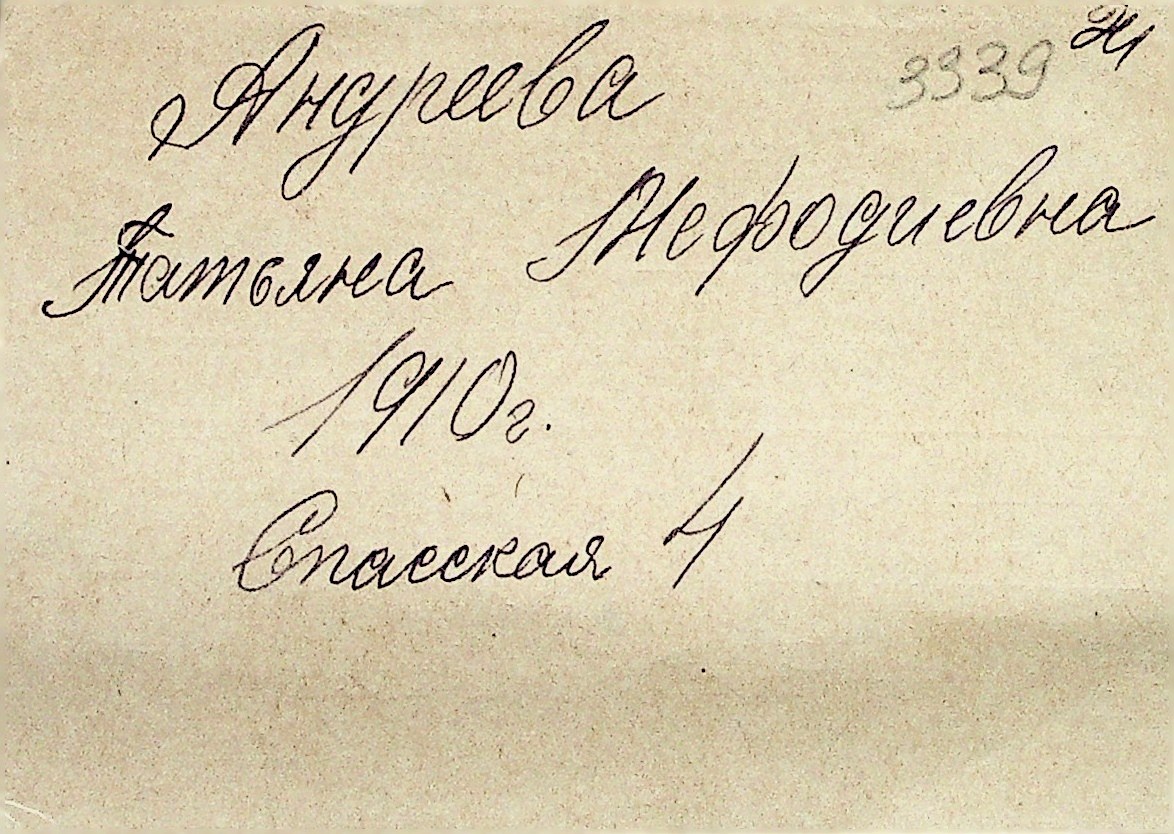 3339
Андреева
Татьяна Мефодиевна
1910г.
Спасская 4